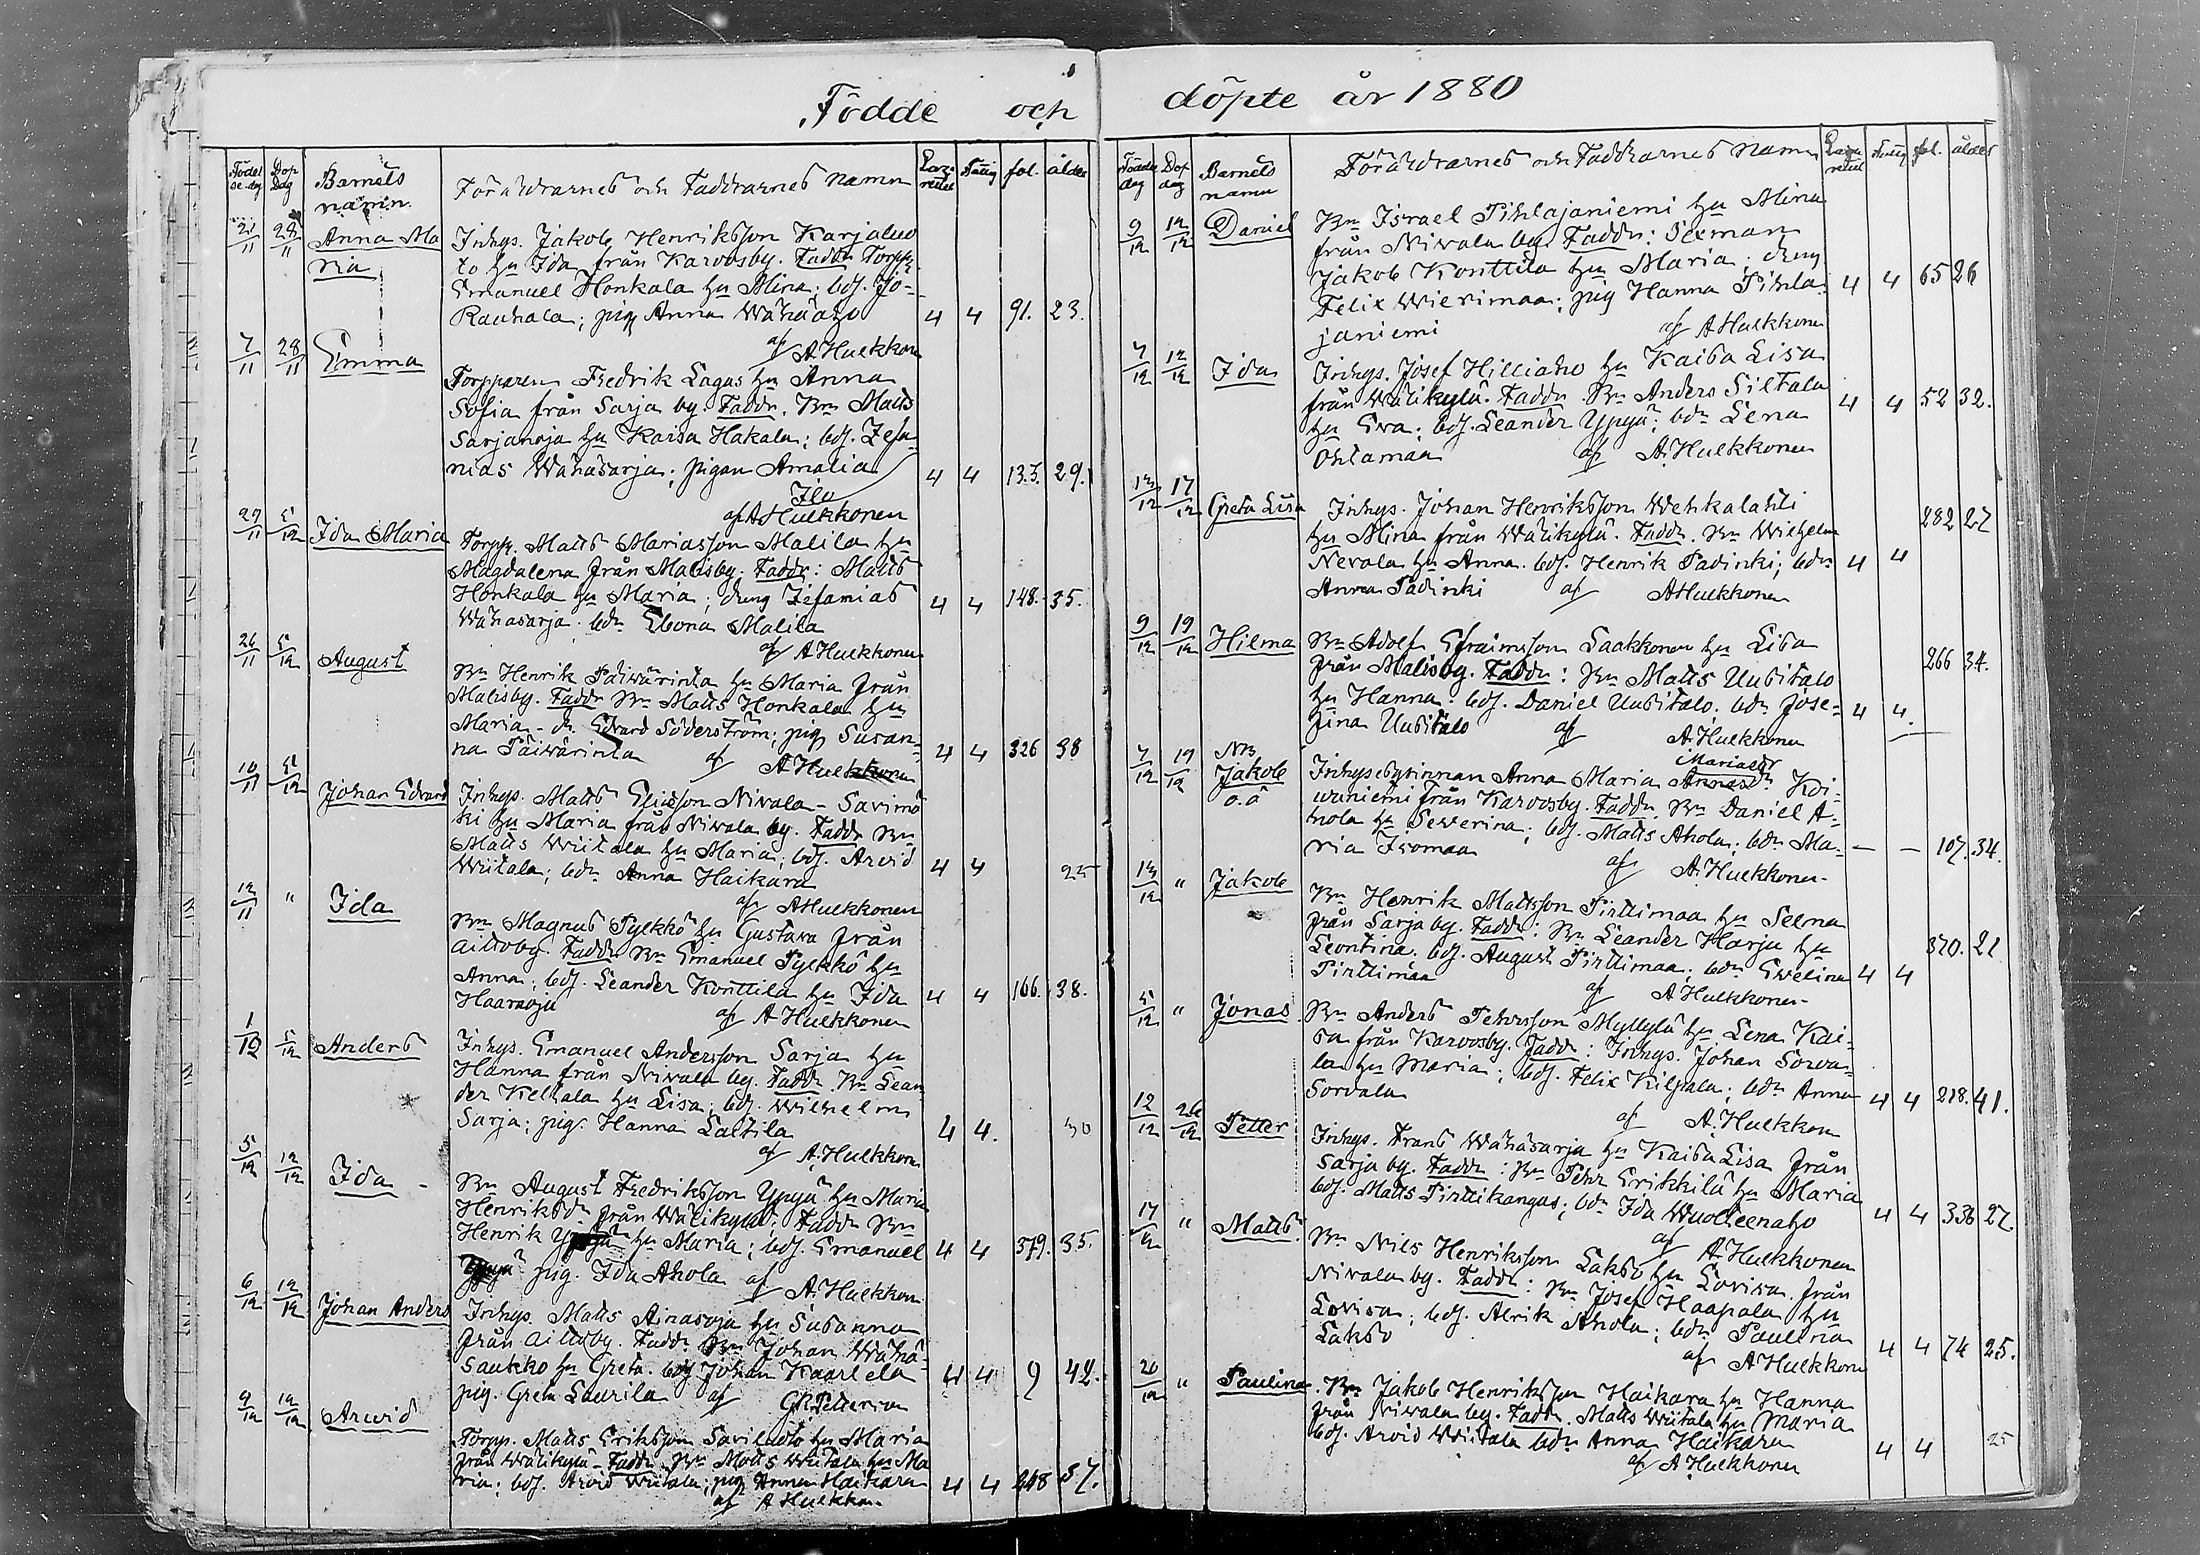 Födde och döpte år 1880
Födel
se dag
Dop
dag
Barnets
namn
Föräldrarnes och Faddrarnes namn
fol. ålder
21/11 28/11 Anna Ma
ria
Inhys. Jakob Henriksson Karjaluo
to hu Ida från Karvosby. Faddr Torpp.
Emanuel Honkala hu Mina; bdj. Jo-
Rauhala; pig Anna Wähäaho 4 4 91. 23.
af A Hulkkon
7/11 28/11 Emma
Torpparen Fredrik Lagus hu Anna
Sofia från Sarja by. Faddr. Bn Matts
Sarjanoja hu Kaisa Hakala; bdj. Zefa
nias Wähäsarja; pigan Amalia 4 4 133. 29.
Ilo
af A Hulkkonen
27/11 5/12 Ida Maria
Torpp. Matts Mariasson Malila hu
Magdalena från Malisby. Faddr: Matts
Honkala hu Maria; dreng Zefanias 4 4 148. 35.
Wähäsarja; bdr Eleona Malila
af A Hulkkonen
26/11 5/12 August
Bn Henrik Päiwärinta hu Maria från
Malisby. Faddr Bn Matts Honkala hu
Maria - dr Edvard Söderström; pig Susan-
na Päiwärinta 4 4 326 38
af A Hulkkonen
10/11 5/12 Johan Edvard
Inhys. Matts Eliasson Nivala - Savimä
ki hu Maria från Nivala by. Faddr Bn
Matts Wiitala hu Maria; bdj. Arvid
Wiitala; bdr Anna Haikara 4 4 25
af A Hulkkonen
12/11 " Ida
Bn Magnus Pylkkö hu Gustava från
Aittoby. Faddr Bn Emanuel Pylkkö hu
Anna; bdj. Leander Konttila hu Ida 4 4 166. 38.
Haaraoja
af A Hulkkonen
1/12 5/12 Anders
Inhys. Emanuel Andersson Sarja hu
Hanna från Nivala by. Faddr Bn Lean
der Keltala hu Lisa; bdj. Wilhelm
Sarja; pig. Hanna Laitila 4 4. 30
af A. Hulkkon
5/12 12/12 Ida -
Bn August Fredriksson Ypyä hu Maria
Henriksdr från Wälikylä. Faddr Bn
Henrik Ypyä hu Maria; bdj. Emanuel 4 4 379. 35.
Ypyä pig. Ida Ahola af A. Hulkkon
6/12 12/12 Johan Anders
Inhys. Matts Ainasoja hu Susanna
från Aittoby. Faddr Bn Johan Wähä-
Saukko hu Greta. bdj Johan Kaarlela 4 4 9 42.
pig. Greta Laurila af
9/12 12/12 Arvid
Torpp. Matts Eriksson Saviluoto hu Maria
från Wälikylä - Faddr. Bn Matts Wiitala hu Ma
ria; bdj. Arvid Wiitala; pig Anna Haikara 4 4 248 37.
af A Hulkkon
Födde
dag
Dop
dag
Barnets
namn
Föräldrarnes och Faddrarnes namn
fol. ålder
9/12 12/12 Daniel
Bn Israel Pihlajaniemi hu Mina
från Nivala by. Faddr: Sexman
Jakob Konttila hu Maria; dreng
Felix Wierimaa; pig Hanna Pihla 4 4 65 26
janiemi af A Hulkkonen
7/12 12/12 Ida
Inhys. Josef Hilliaho hu Kaisa Lisa
från Wälikylä. Faddr Bn Anders Siltala 4 4 52 32.
hu Eva; bdj. Leander Ypyä; bdr Lena
Ohlamaa af A. Hulkkonen
13/12 17/12 Greta Lisa
Inhys. Johan Henriksson Wehkalahti 282 27
hu Mina från Wälikylä. Faddr. Bn Wilhelm
Nevala hu Anna. bdj. Henrik Padinki; bdr 4 4
Anna Padinki af A Hulkkonen
9/12 19/12 Hilma
Bn Adolf Efraimsson Laakkonen hu Lisa
från Malisby. Faddr: Bn Matts Uusitalo 266 34.
hu Hanna. bdj. Daniel Uusitalo; bdr Jose- 4 4.
fina Uusitalo af A. Hulkkonen
7/12 19/12 NB
Jakob
o.ä
Mariasdr
Inhyseqvinnan Anna Maria Annasdr Koi-
vuniemi från Karvosby. Faddr. Bn Daniel A-
hola hu Severina; bdj. Matts Ahola; bdr Ma- — — 107. 34.
ria Isomaa af A. Hulkkonen
13/12 " Jakob
Bn Henrik Mattsson Pirttimaa hu Selma
från Sarja by. Faddr: Bn Leander Harju hu 370. 21
Leontina. bdj. August Pirttimaa; bdr Evelina 4 4
Pirttimaa af A Hulkkonen
5/12 " Jonas
Bn Anders Petersson Myllylä hu Lena Kai-
sa från Karvosby. Faddr: Inhys. Johan Sorva-
la hu Maria; bdj. Felix Kilpala; bdr Anna 4 4 218. 41.
Sorvala af A. Hulkkon
12/12 26/12 Petter
Inhys. Frans Wähäsarja hu Kaisa Lisa från
Sarja by. Faddr: Bn Pehr Erikkilä hu Maria
bdj. Matts Pirttikangas; bdr Ida Wuolteenaho 4 4 336 27.
af A. Hulkkonen
17/12 " Matts
Bn Nils Henriksson Lakso hu Lovisa från
Nivala by. Faddr: Bn Josef Haapala hu
Lovisa; bdj. Alrik Ahola; bdr Paulina
Lakso 4 4 74 25.
af A Hulkkonen
20/12 " Paulina
Bn Jakob Henriksson Haikara hu Hanna
från Nivala by. Faddr. Matts Wiitala hu Maria
bdj. Arvid Wiitala bdr Anna Haikara 4 4 25
af A Hulkkonen